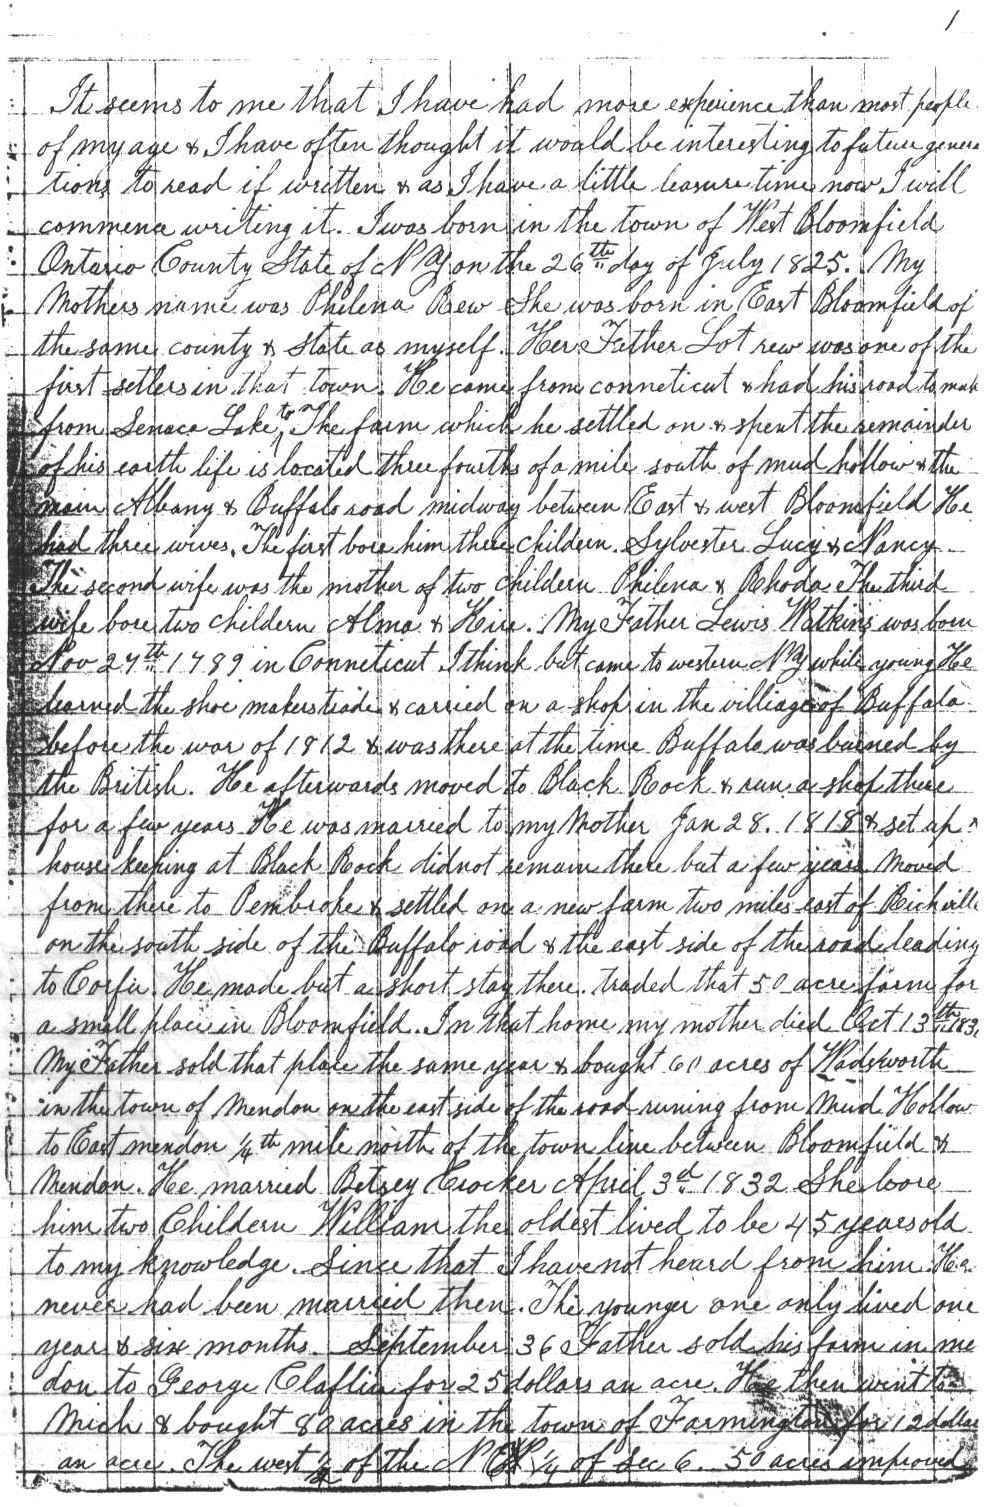 1
It seems to me that I have had more experience than most people
of my age & I have often thought it would be interesting to future genera
tions to read if written & as I have a little leasure time now I will
commence writing it. I was born in the town of West Bloomfield
Ontario County State of N Y on the 26th day of July 1825. My
Mothers name was Philena Rew She was born in East Bloomfield of
the same county & state as myself. Her Father Lot rew was one of the
first setlers in that town. He came from conneticut & had his road to make
from Seneca Lake to The farm which he settled on & spent the remainder
of his earth life is located three fourths of a mile south of mud hollow & the
main Albany & Buffalo road midway between East & west Bloomfield He
had three wives. The first bore him three childern. Sylvester Lucy & Nancy
The second wife was the mother of two childern Philena & Rhoda The third
wife bore two childern Alma & Hire. My Father Lewis Watkins was born
Nov 27th 1789 in Conneticut I think but came to western N Y while young He
learned the shoe makers trade & carried on a shop in the villiage of Buffalo
before the war of 1812 & was there at the time Buffalo was burned by
the British. He afterwards moved to Black Rock & run a shop there
for a few years He was married to my Mother Jan 28. 1818 & set up
house keeping at Black Rock did not remain there but a few years moved
from there to Pembroke & settled on a new farm two miles east of Richville
on the south side of the Buffalo road & the east side of the road leading
to Corfu. He made but a short stay there. traded that 50 acre farm for
a small place in Bloomfield. In that home my mother died Oct 13th 183
My Father sold that place the same year & bought 60 acres of Wadsworth
in the town of Mendon on the east side of the road runing from Mud Hollow
to East mendon 1/4th mile north of the town line between Bloomfield &
Mendon. He married Betsey Crocker April 3d 1832 She bore
him two Childern William the oldest lived to be 45 years old
to my knowledge. Since that I have not heard from him. He
never had been married then. The younger one only lived one
year & six months. September 36 Father sold his farm in me
don to George Claflin for 25 dollars an acre. He then went to
Mich & bought 80 acres in the town of Farmington for 12 dollars
an acre. The west 1/2 of the N 1/4 of Sec 6. 50 acres improved